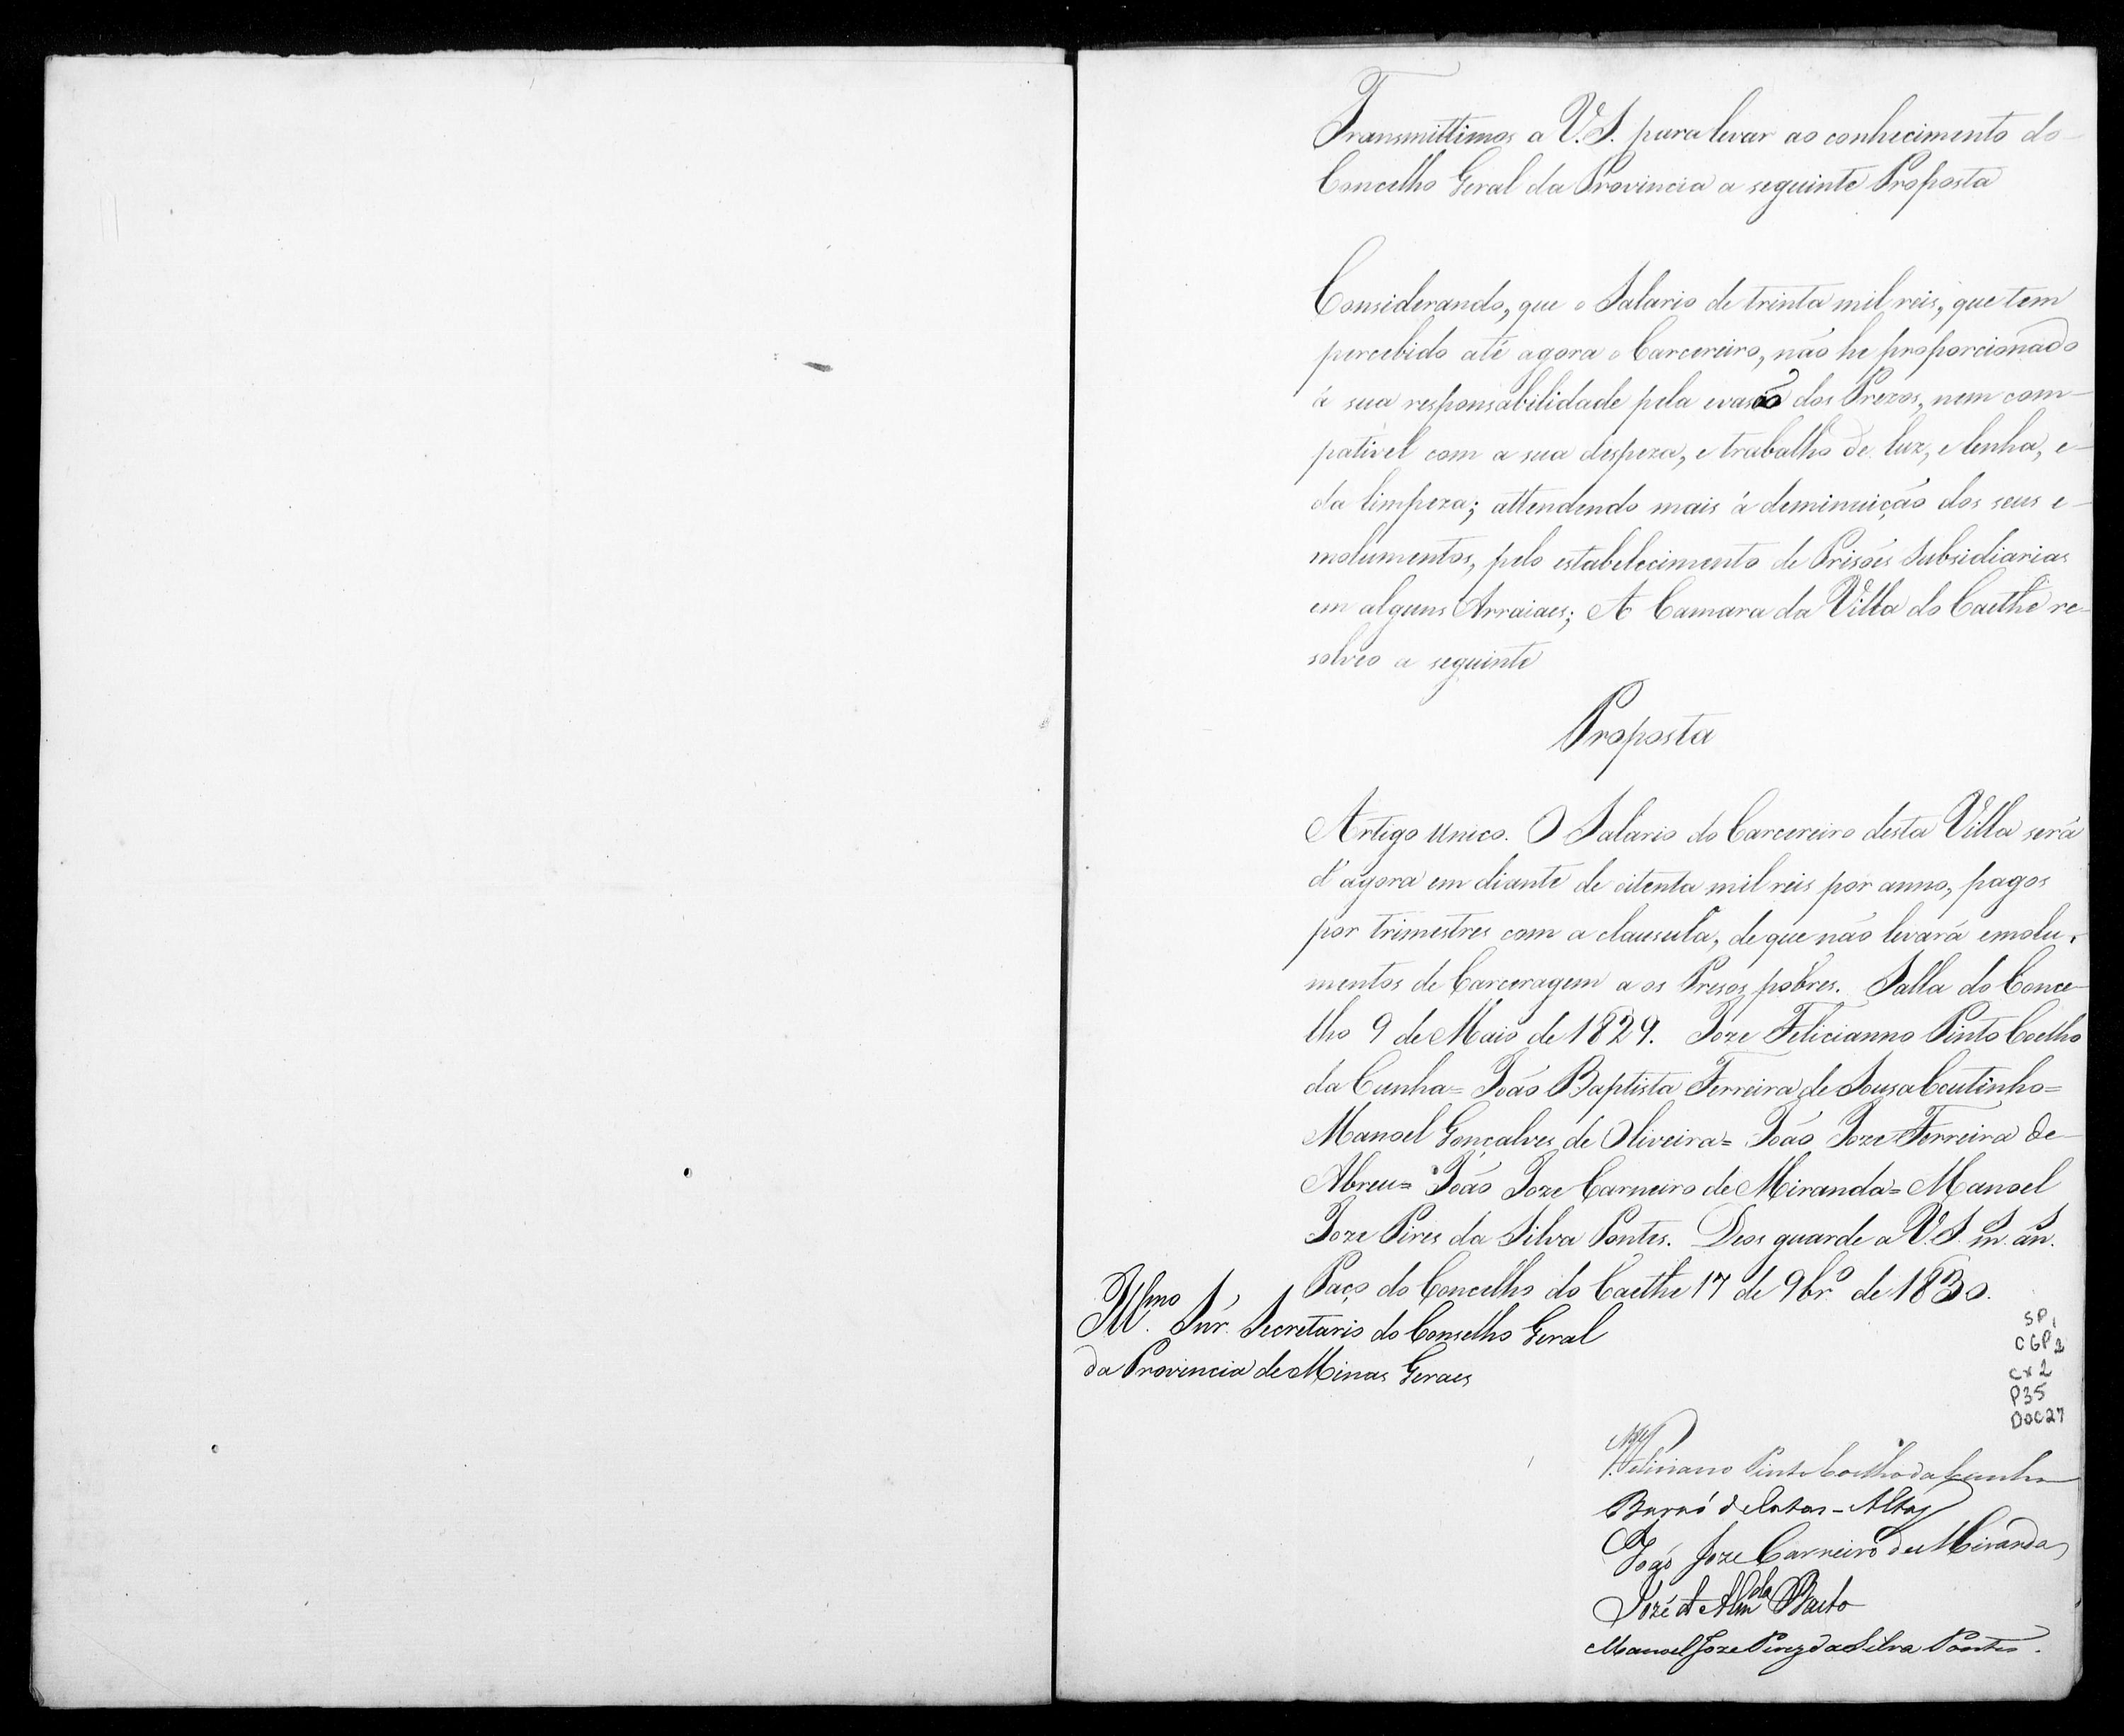 Transmittimos a V. S. para levar ao conhecimento do
Concelho Geral da Provincia a seguinte Proposta
Considerando, que o Salario de trinta mil reis, que tem
percebido até agora o Carcereiro, não he proporcionado
á sua responsabilidade pela evasão dos Prezos, nem com-
pativel com a sua despeza, e trabalho de luz, e lenha, e
da limpeza; attendendo mais á deminuição dos seus e-
molumentos, pelo estabelecimento de Prisões Subsidiarias
em alguns Arraiaes; A Camara da Villa do Caethé re-
solveo a seguinte
Proposta
Artigo unico. O Salario do Carcereiro desta Villa será
d'agora em diante de oitenta mil reis por anno, pagos
por trimestres com a clausula, de que não levará emolu-
mentos de Carceragem a os Presos pobres. Salla do Conce-
lho 9 de Maio de 1829. Joze Felicianno Pinto Coelho
da Cunha= João Baptista Ferreira de Sousa Coutinho=
Manoel Gonçalves de Oliveira= João Joze Ferreira de
Abreu= João Joze Carneiro de Miranda= Manoel
Joze Pires da Silva Pontes. Deos guarde a V. S. m. an.
Paço do Concelho do Caethe 17 de 9br.o de 1830.
Illmo. Snr. Secretario do Conselho Geral
da Provincia de Minas Geraes
SP 1
CGP 2
cx 2
P35
DOC 27
Feliciano Pinto Coelho da Cunha
Barão de Catas-Altas
João Joze Carneiro de Miranda
José d'Almda
Manoel Joze Pires da Silva Pontes.